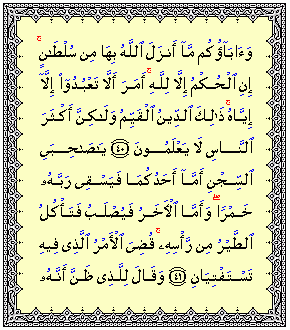 وَءَابَآؤُكُم مَّآ أَنزَلَ ٱللَّهُ بِهَا مِن سُلْطَٰنٍ ۚ
إِنِ ٱلْحُكْمُ إِلَّا لِلَّهِ ۚ أَمَرَ أَلَّا تَعْبُدُوٓا۟ إِلَّآ
إِيَّاهُ ۚ ذَٰلِكَ ٱلدِّينُ ٱلْقَيِّمُ وَلَٰكِنَّ أَكْثَرَ
ٱلنَّاسِ لَا يَعْلَمُونَ ﴿٤٠﴾ يَٰصَىٰحِبَىِ
ٱلسِّجْنِ أَمَّآ أَحَدُكُمَا فَيَسْقِى رَبَّهُۥ
خَمْرًا ۖ وَأَمَّا ٱلْءَاخَرُ فَيُصْلَبُ فَتَأْكُلُ
ٱلطَّيْرُ مِن رَّأْسِهِۦ ۚ قُضِىَ ٱلْأَمْرُ ٱلَّذِى فِيهِ
تَسْتَفْتِيَانِ ﴿٤١﴾ وَقَالَ لِلَّذِى ظَنَّ أَنَّهُۥ